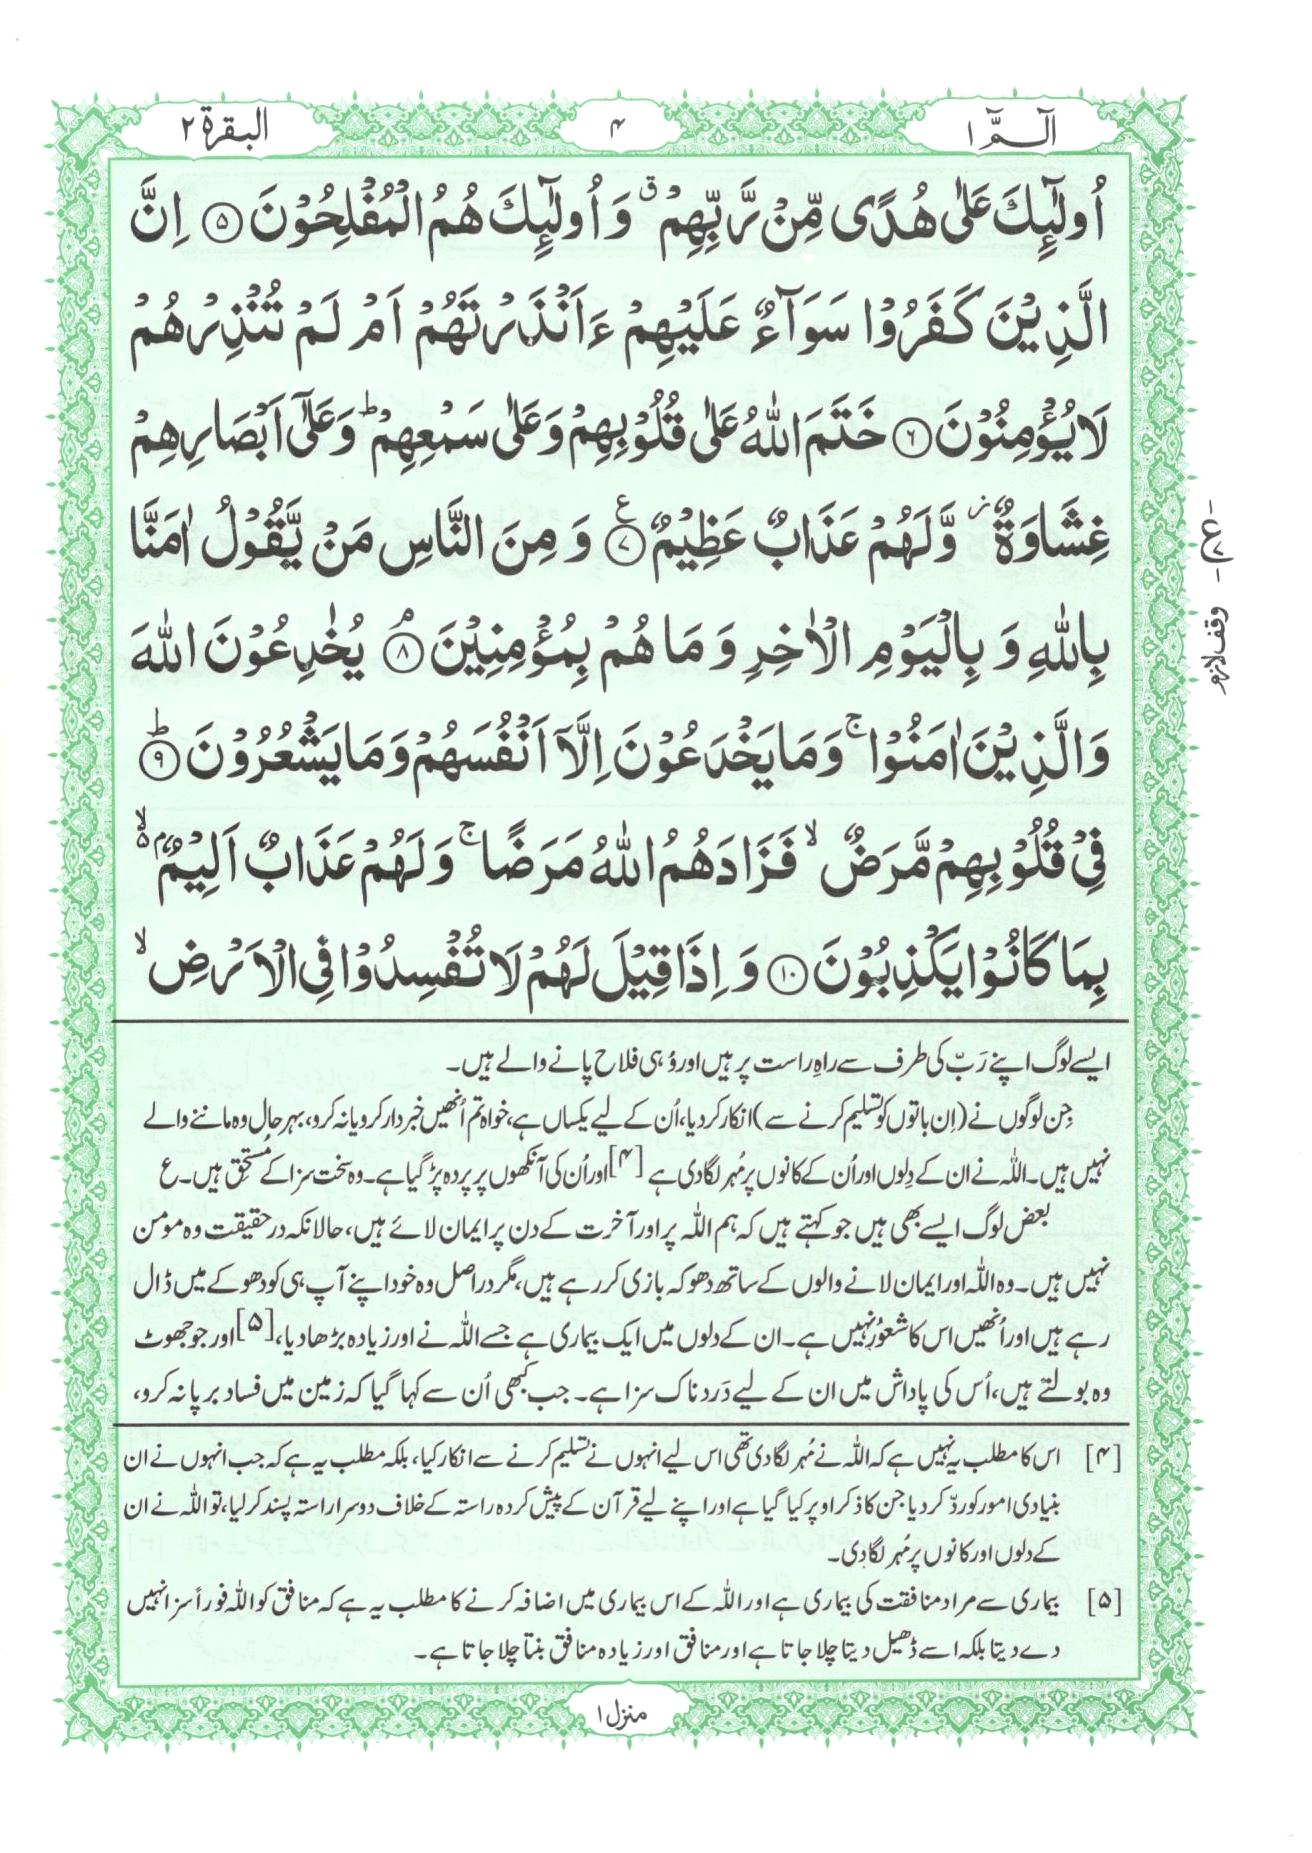 الٓـمّٓ ١
۴
البقرۃ ٢
اُولٰٓئِكَ عَلٰى هُدًى مِّنْ رَّبِّهِمْ ۗ وَ اُولٰٓئِكَ هُمُ الْمُفْلِحُوْنَ ۝۵ اِنَّ
الَّذِيْنَ كَفَرُوْا سَوَآءٌ عَلَيْهِمْ ءَاَنْذَرْتَهُمْ اَمْ لَمْ تُنْذِرْهُمْ
لَا يُؤْمِنُوْنَ ۝۶ خَتَمَ اللّٰهُ عَلٰى قُلُوْبِهِمْ وَعَلٰى سَمْعِهِمْ ؕ وَعَلٰٓى اَبْصَارِهِمْ
غِشَاوَةٌ ؗ وَّلَهُمْ عَذَابٌ عَظِيْمٌ ۝۷ ع وَ مِنَ النَّاسِ مَنْ يَّقُوْلُ اٰمَنَّا
بِاللّٰهِ وَ بِالْيَوْمِ الْاٰخِرِ وَ مَا هُمْ بِمُؤْمِنِيْنَ ۘ ۝۸ يُخٰدِعُوْنَ اللّٰهَ
وَالَّذِيْنَ اٰمَنُوْا ۚ وَمَا يَخْدَعُوْنَ اِلَّآ اَنْفُسَهُمْ وَمَا يَشْعُرُوْنَ ؕ ۝۹
فِيْ قُلُوْبِهِمْ مَّرَضٌ ۙ فَزَادَهُمُ اللّٰهُ مَرَضًا ۚ وَلَهُمْ عَذَابٌ اَلِيْمٌۢ ۙ۵
بِمَا كَانُوْا يَكْذِبُوْنَ ۝۱۰ وَ اِذَا قِيْلَ لَهُمْ لَا تُفْسِدُوْا فِي الْاَرْضِ ۙ
ع
وقف لازم
ایسے لوگ اپنے رَبّ کی طرف سے راہِ راست پر ہیں اور وُہی فلاح پانے والے ہیں۔
جِن لوگوں نے (اِن باتوں کو تسلیم کرنے سے) انکار کر دیا، اُن کے لیے یکساں ہے، خواہ تم اُنھیں خبردار کرو یا نہ کرو، بہرحال وہ ماننے والے
نہیں ہیں۔ اللہ نے ان کے دِلوں اور اُن کے کانوں پر مُہر لگا دی ہے [۴] اور اُن کی آنکھوں پر پردہ پڑ گیا ہے۔ وہ سخت سزا کے مُستحِق ہیں۔ ع
بعض لوگ ایسے بھی ہیں جو کہتے ہیں کہ ہم اللہ پر اور آخرت کے دن پر ایمان لائے ہیں، حالانکہ درحقیقت وہ مومن
نہیں ہیں۔ وہ اللہ اور ایمان لانے والوں کے ساتھ دھوکہ بازی کر رہے ہیں، مگر دراصل وہ خود اپنے آپ ہی کو دھوکے میں ڈال
رہے ہیں اور اُنھیں اس کا شعُور نہیں ہے۔ ان کے دلوں میں ایک بیماری ہے جسے اللہ نے اور زیادہ بڑھا دیا، [۵] اور جو جھوٹ
وہ بولتے ہیں، اُس کی پاداش میں ان کے لیے دَردناک سزا ہے۔ جب کبھی اُن سے کہا گیا کہ زمین میں فساد برپا نہ کرو،
[۴] اس کا مطلب یہ نہیں ہے کہ اللہ نے مُہر لگا دی تھی اس لیے انہوں نے تسلیم کرنے سے انکار کیا، بلکہ مطلب یہ ہے کہ جب انہوں نے ان
بنیادی امور کو ردّ کر دیا جن کا ذکر اوپر کیا گیا ہے اور اپنے لیے قرآن کے پیش کردہ راستہ کے خلاف دوسرا راستہ پسند کر لیا، تو اللہ نے ان
کے دلوں اور کانوں پر مُہر لگا دی۔
[۵] بیماری سے مراد منافقت کی بیماری ہے اور اللہ کے اس بیماری میں اضافہ کرنے کا مطلب یہ ہے کہ منافق کو اللہ فوراً سزا نہیں
دے دیتا بلکہ اسے ڈھیل دیتا چلا جاتا ہے اور منافق اور زیادہ منافق بنتا چلا جاتا ہے۔
منزل ١